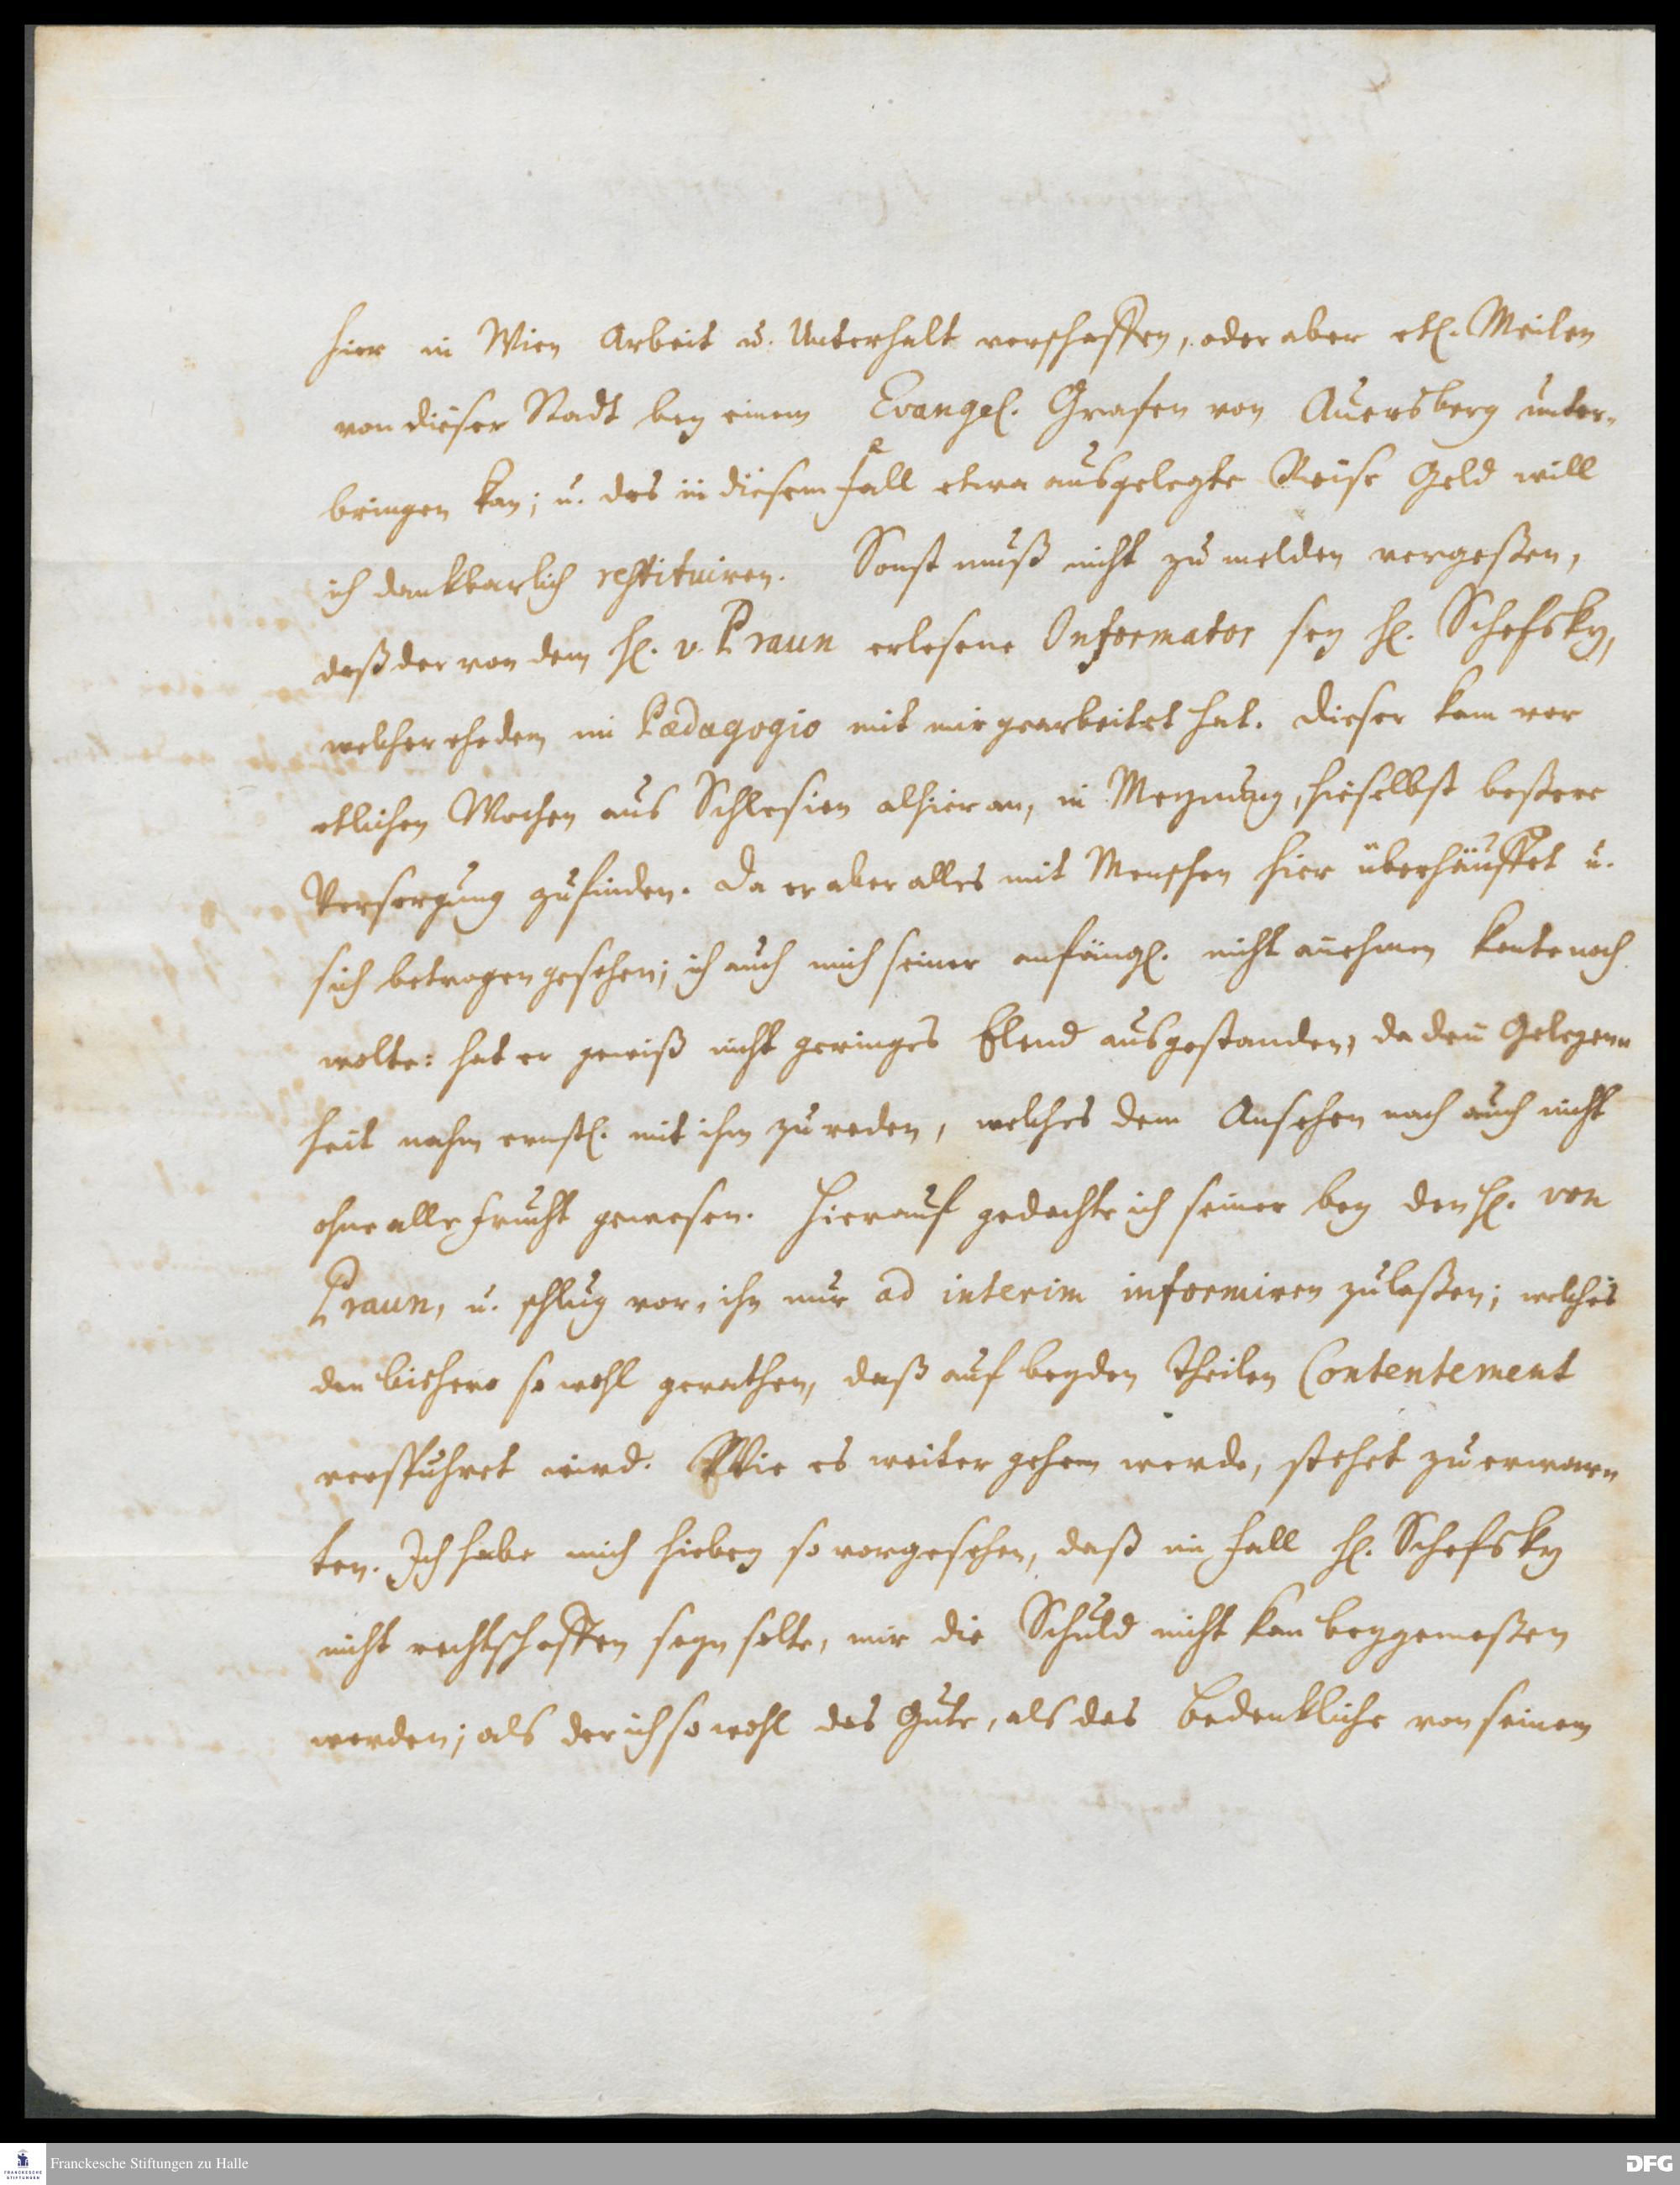 hier in Wien Arbeit u. Unterhalt verschaffen, oder aber etl. Meilen
von dieser Stadt bey einem Evangel. Grafen von Auersberg unter-
bringen kan; u. das in diesem Fall etwa ausgelegte Reise Geld will
ich dankbarlich restituiren. Sonst muß nicht zu melden vergeßen,
daß der von dem H. v. Praun erlesene Informator sey H. Schefsky,
welcher ehedem im Pædagogio mit mir gearbeitet hat. Dieser kam vor
etlichen Wochen aus Schlesien alhier an, in Meynung, hieselbst beßere
Versorgung zufinden. Da er aber alles mit Menschen hier überhäuffet u.
sich betrogen gesehen; ich auch mich seiner anfängl. nicht añehmen konte noch
wolte: hat er gewiß nicht geringes Elend ausgestanden, da deñ Gelegen-
heit nahm ernstl. mit ihm zu reden, welches dem Ansehen nach auch nicht
ohne alle Frucht gewesen. Hierauf gedachte ich seiner bey den H. von
Praun, u. schlug vor, ihn nur ad interim informiren zulaßen; welches
den bishero so wohl gerathen, daß auf beyden Theilen Contentement
verspühret wird. Wie es weiter gehen werde, stehet zu erwar-
ten. Ich habe mich hiebey so vorgesehen, daß im Fall H. Schefsky
nicht rechtschaffen seyn solte, mir die Schuld nicht kan beygemeßen
werden; als der ich so wohl das Gute, als das Bedenkliche von seinem
Franckesche Stiftungen zu Halle
FRANCKESCHE
STIFTUNGEN
DFG